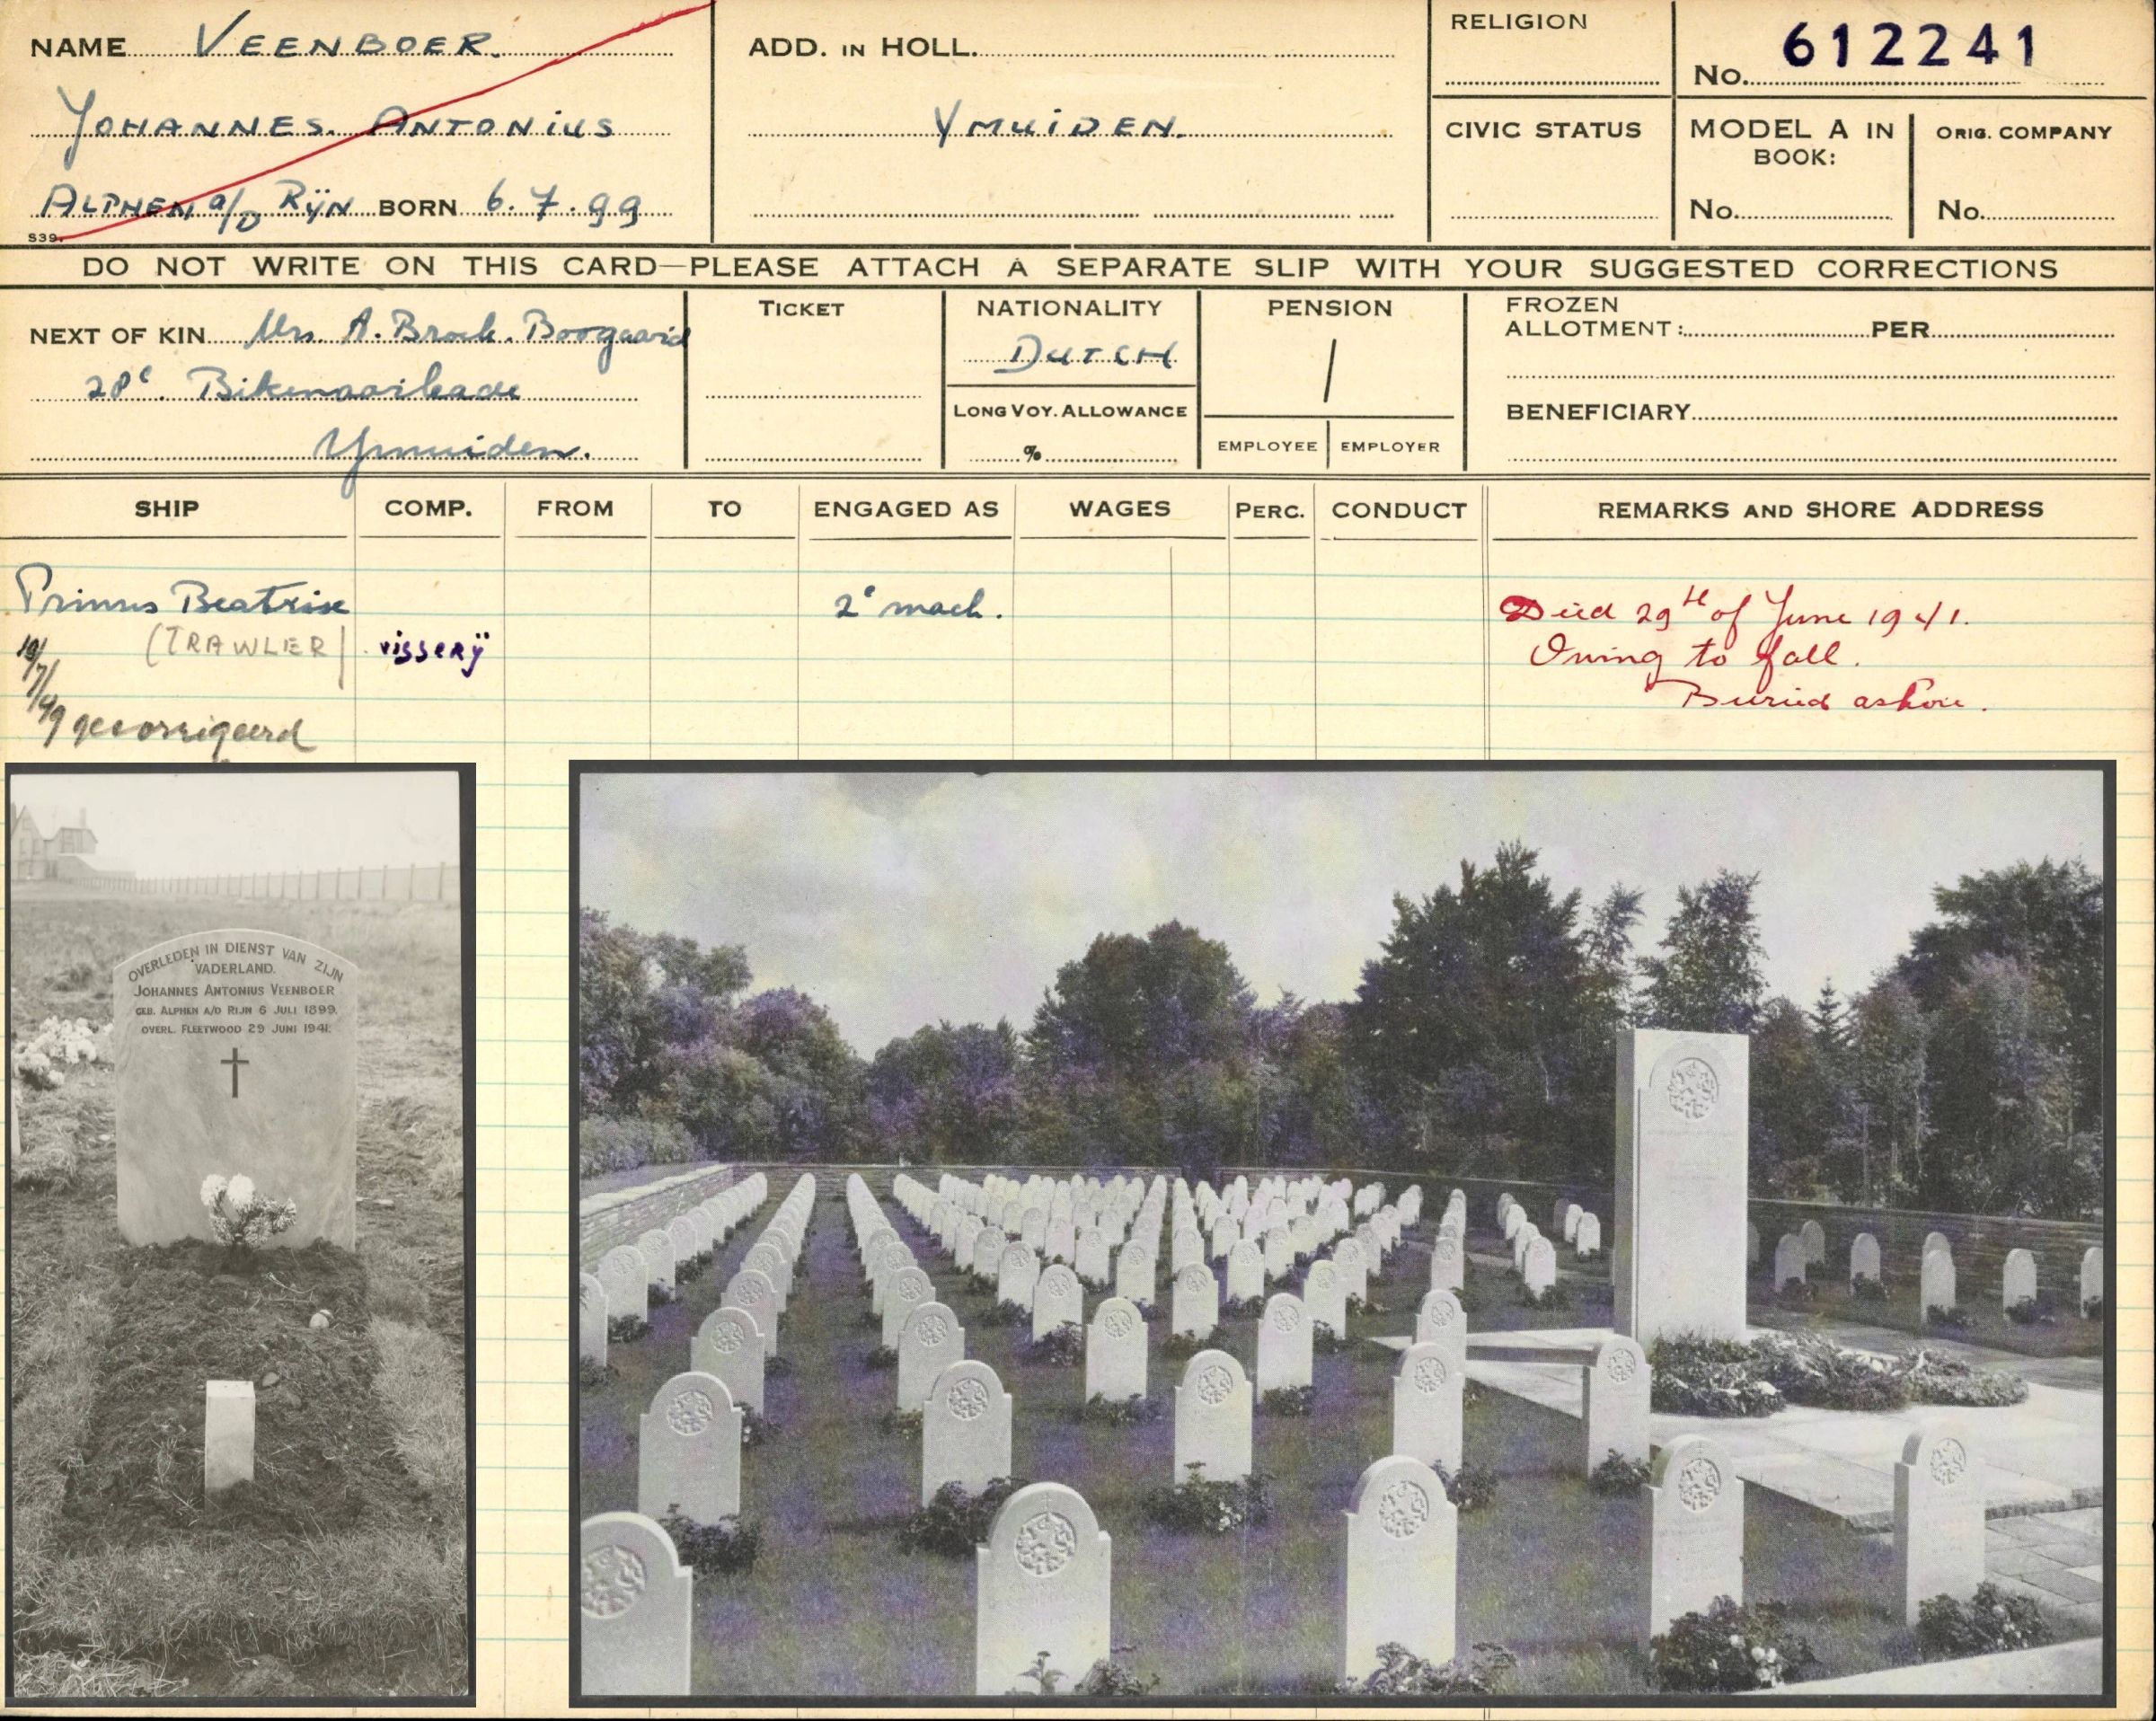 NAME VEENBOER.
JOHANNES. ANTONIUS
ALPHEN a/D RIJN BORN 6.7.99
S39.
ADD. IN HOLL.
YMUIDEN.
RELIGION
No. 612241
CIVIC STATUS
MODEL A IN BOOK:
No.
ORIG. COMPANY
No.
DO NOT WRITE ON THIS CARD—PLEASE ATTACH A SEPARATE SLIP WITH YOUR SUGGESTED CORRECTIONS
NEXT OF KIN Mrs A. Broek. Boogaard
Ymuiden.
TICKET
NATIONALITY
DUTCH
LONG VOY. ALLOWANCE
%
PENSION
EMPLOYEE EMPLOYER
FROZEN
ALLOTMENT: PER
BENEFICIARY
SHIP COMP. FROM TO ENGAGED AS WAGES PERC. CONDUCT REMARKS AND SHORE ADDRESS
Prinses Beatrix 2e mach.
(TRAWLER) visserij
19/7/49 gecorrigeerd
Died 29th of June 1941.
Owing to fall.
Buried ashore.
OVERLEDEN IN DIENST VAN ZIJN
VADERLAND.
JOHANNES ANTONIUS VEENBOER
GEB. ALPHEN A/D RIJN 6 JULI 1899.
OVERL. FLEETWOOD 29 JUNI 1941.